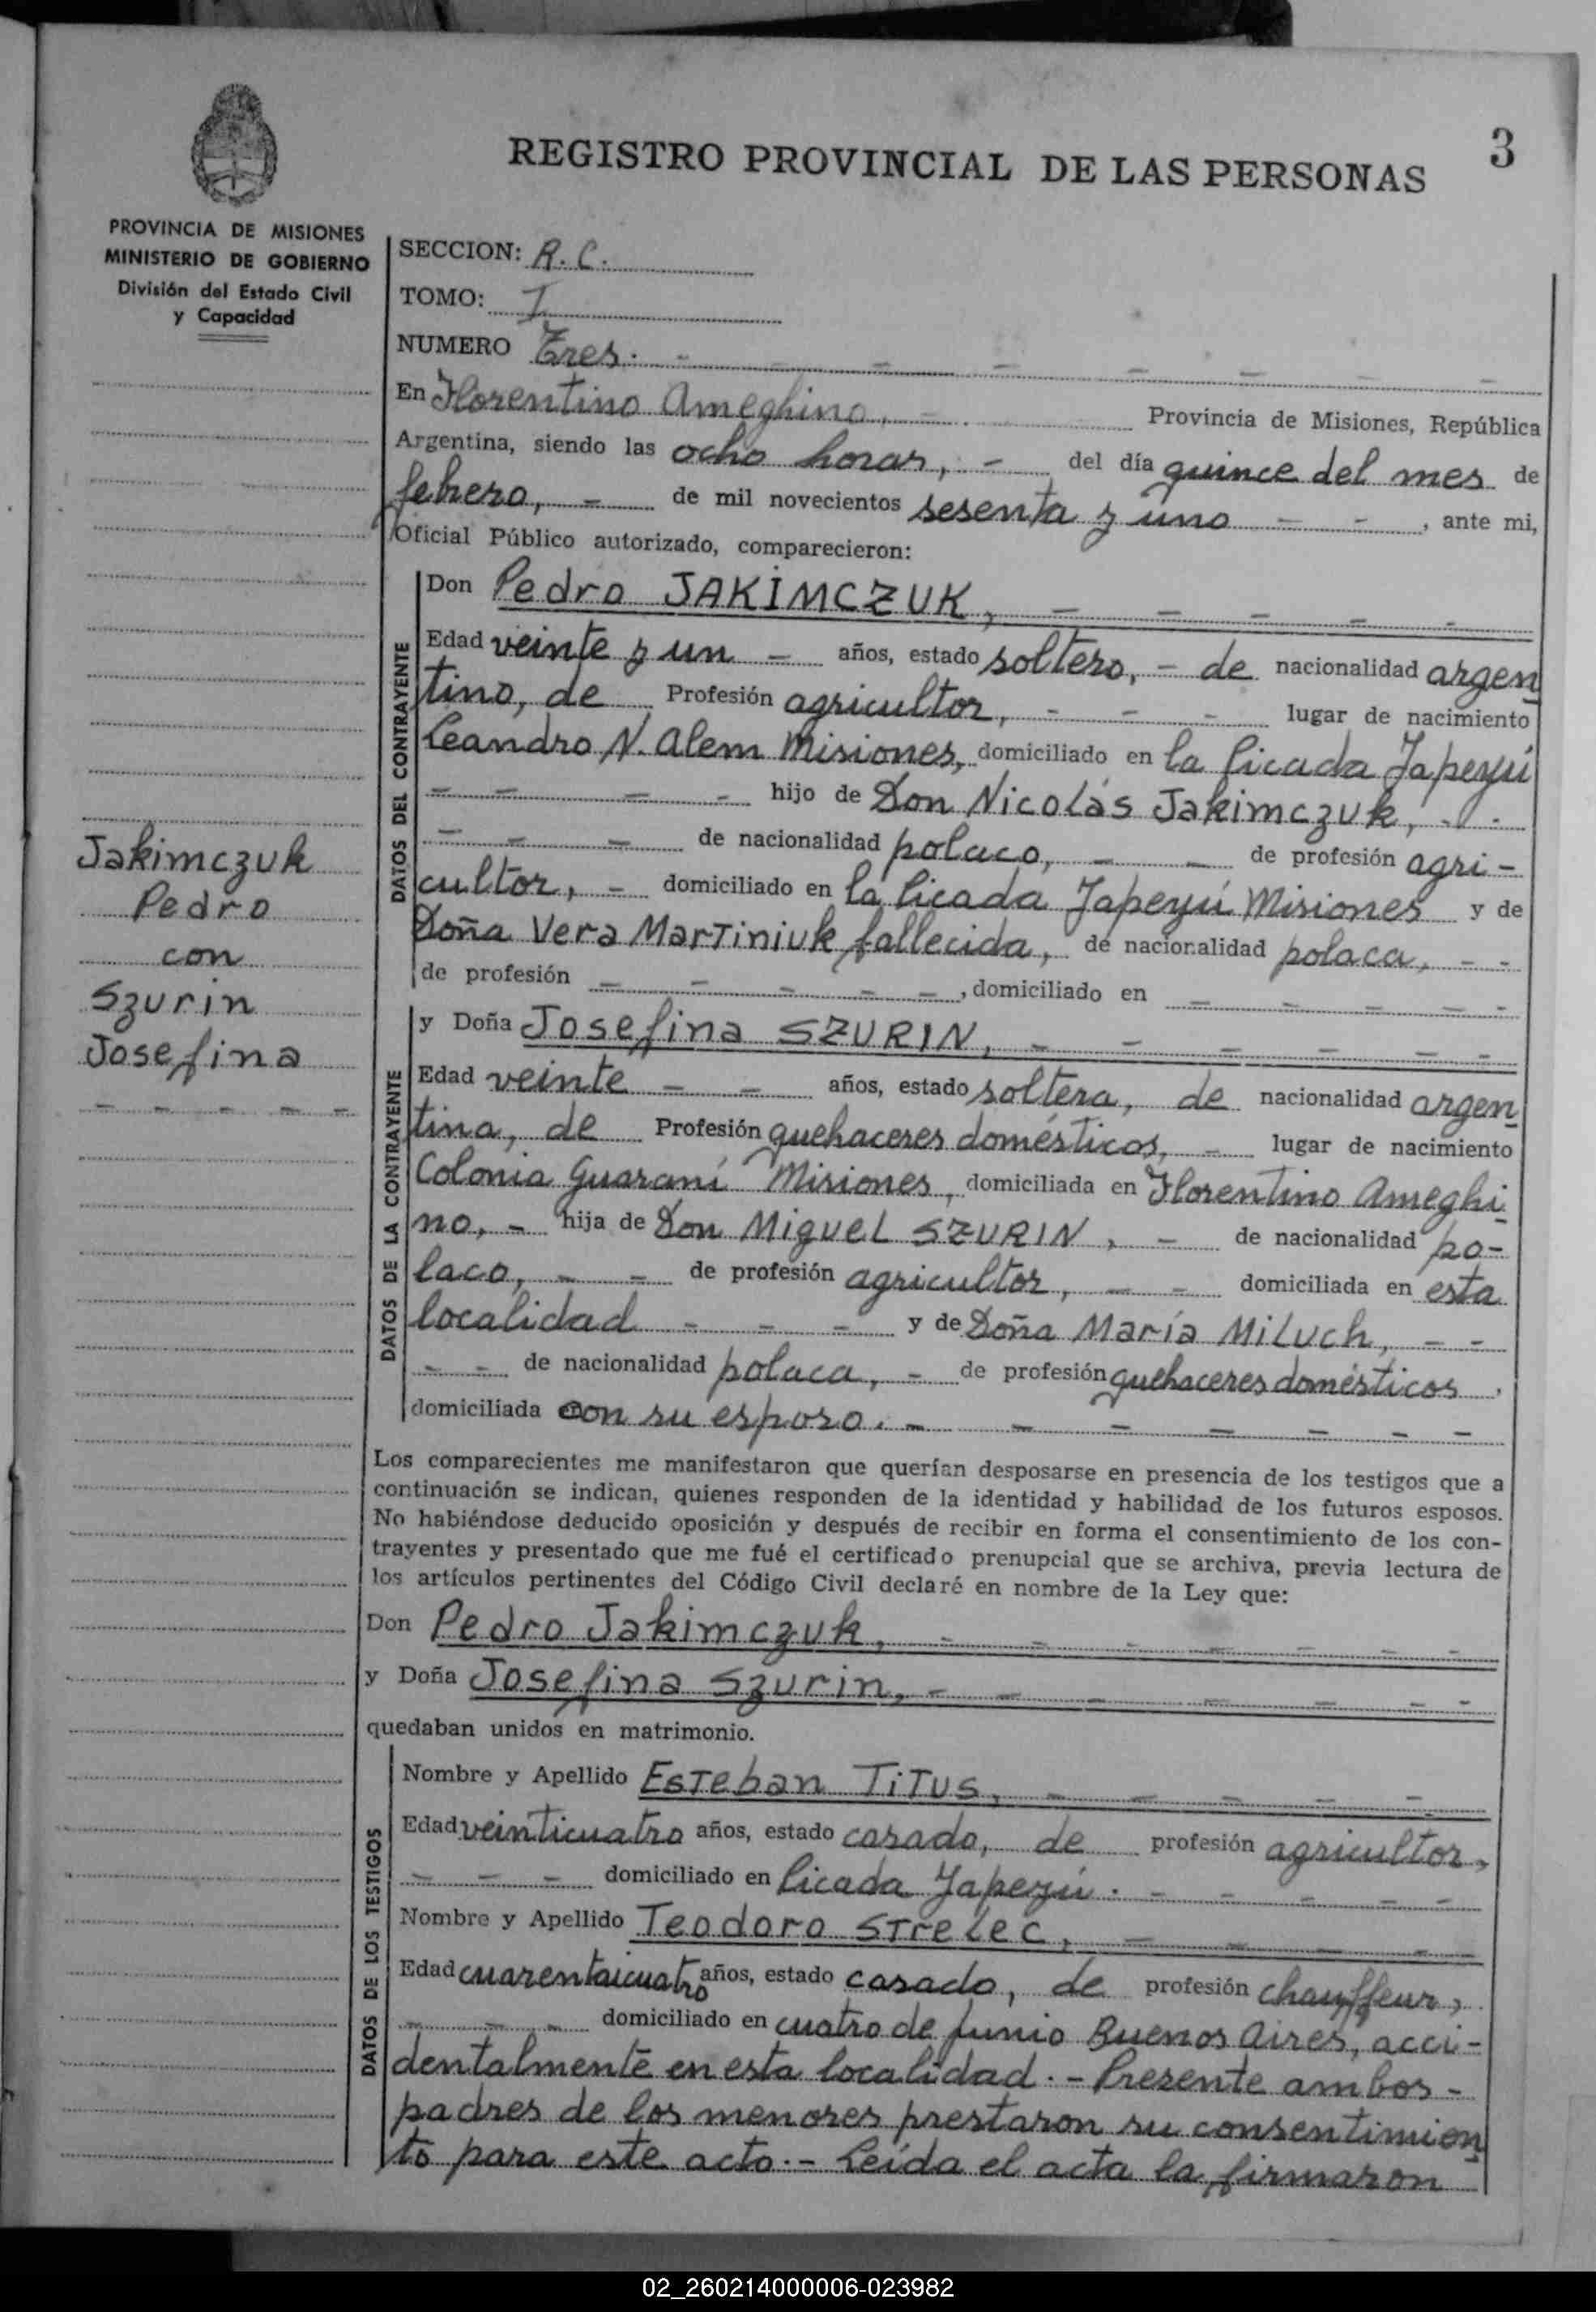 REGISTRO PROVINCIAL DE LAS PERSONAS
3
PROVINCIA DE MISIONES
MINISTERIO DE GOBIERNO
División del Estado Civil
y Capacidad
Jakimczuk
Pedro
con
Szurin
Josefina
SECCION: R. C.
TOMO: I
NUMERO Tres. -
En Florentino Ameghino, - Provincia de Misiones, República
Argentina, siendo las ocho horas, - del día quince del mes de
febrero, - de mil novecientos sesenta y uno - - , ante mi,
Oficial Público autorizado, comparecieron:
DATOS DEL CONTRAYENTE
Don Pedro JAKIMCZUK, - - - - -
Edad veinte y un - años, estado soltero, - de nacionalidad argen
tino, de Profesión agricultor, - - - lugar de nacimiento
Leandro N. Alem Misiones, domiciliado en la Picada Yapeyú
- - - - hijo de Don Nicolás Jakimczuk, - -
- - - de nacionalidad polaco, - - de profesión agri-
cultor, - domiciliado en la Picada Yapeyú Misiones y de
Doña Vera Martiniuk fallecida, de nacionalidad polaca, - -
de profesión - - - - - , domiciliado en - - - - -
DATOS DE LA CONTRAYENTE
y Doña Josefina SZURIN, - - - - - -
Edad veinte - - años, estado soltera, de nacionalidad argen
tina, de Profesión quehaceres domésticos, - lugar de nacimiento
Colonia Guaraní Misiones, domiciliada en Florentino Ameghi
no, - hija de Don Miguel SZURIN, - de nacionalidad po-
laco, - - de profesión agricultor, - - domiciliada en esta
localidad - - - y de Doña María Miluch, - -
- - de nacionalidad polaca, - de profesión quehaceres domésticos,
domiciliada con su esposo. - - - - - - -
Los comparecientes me manifestaron que querían desposarse en presencia de los testigos que a
continuación se indican, quienes responden de la identidad y habilidad de los futuros esposos.
No habiéndose deducido oposición y después de recibir en forma el consentimiento de los con-
trayentes y presentado que me fué el certificado prenupcial que se archiva, previa lectura de
los artículos pertinentes del Código Civil declaré en nombre de la Ley que:
Don Pedro Jakimczuk, - - - - - - -
y Doña Josefina Szurin, - - - - - - -
quedaban unidos en matrimonio.
DATOS DE LOS TESTIGOS
Nombre y Apellido Esteban Titus, - - - - -
Edad veinticuatro años, estado casado, de profesión agricultor,
- - - domiciliado en Picada Yapeyú. - - - - -
Nombre y Apellido Teodoro Strelec, - - - -
Edad cuarentaicuatro años, estado casado, de profesión chauffeur,
- - - domiciliado en cuatro de Junio Buenos Aires, acci-
dentalmente en esta localidad. - Presente ambos -
padres de los menores prestaron su consentimien
to para este acto. - Leída el acta la firmaron
02_260214000006-023982